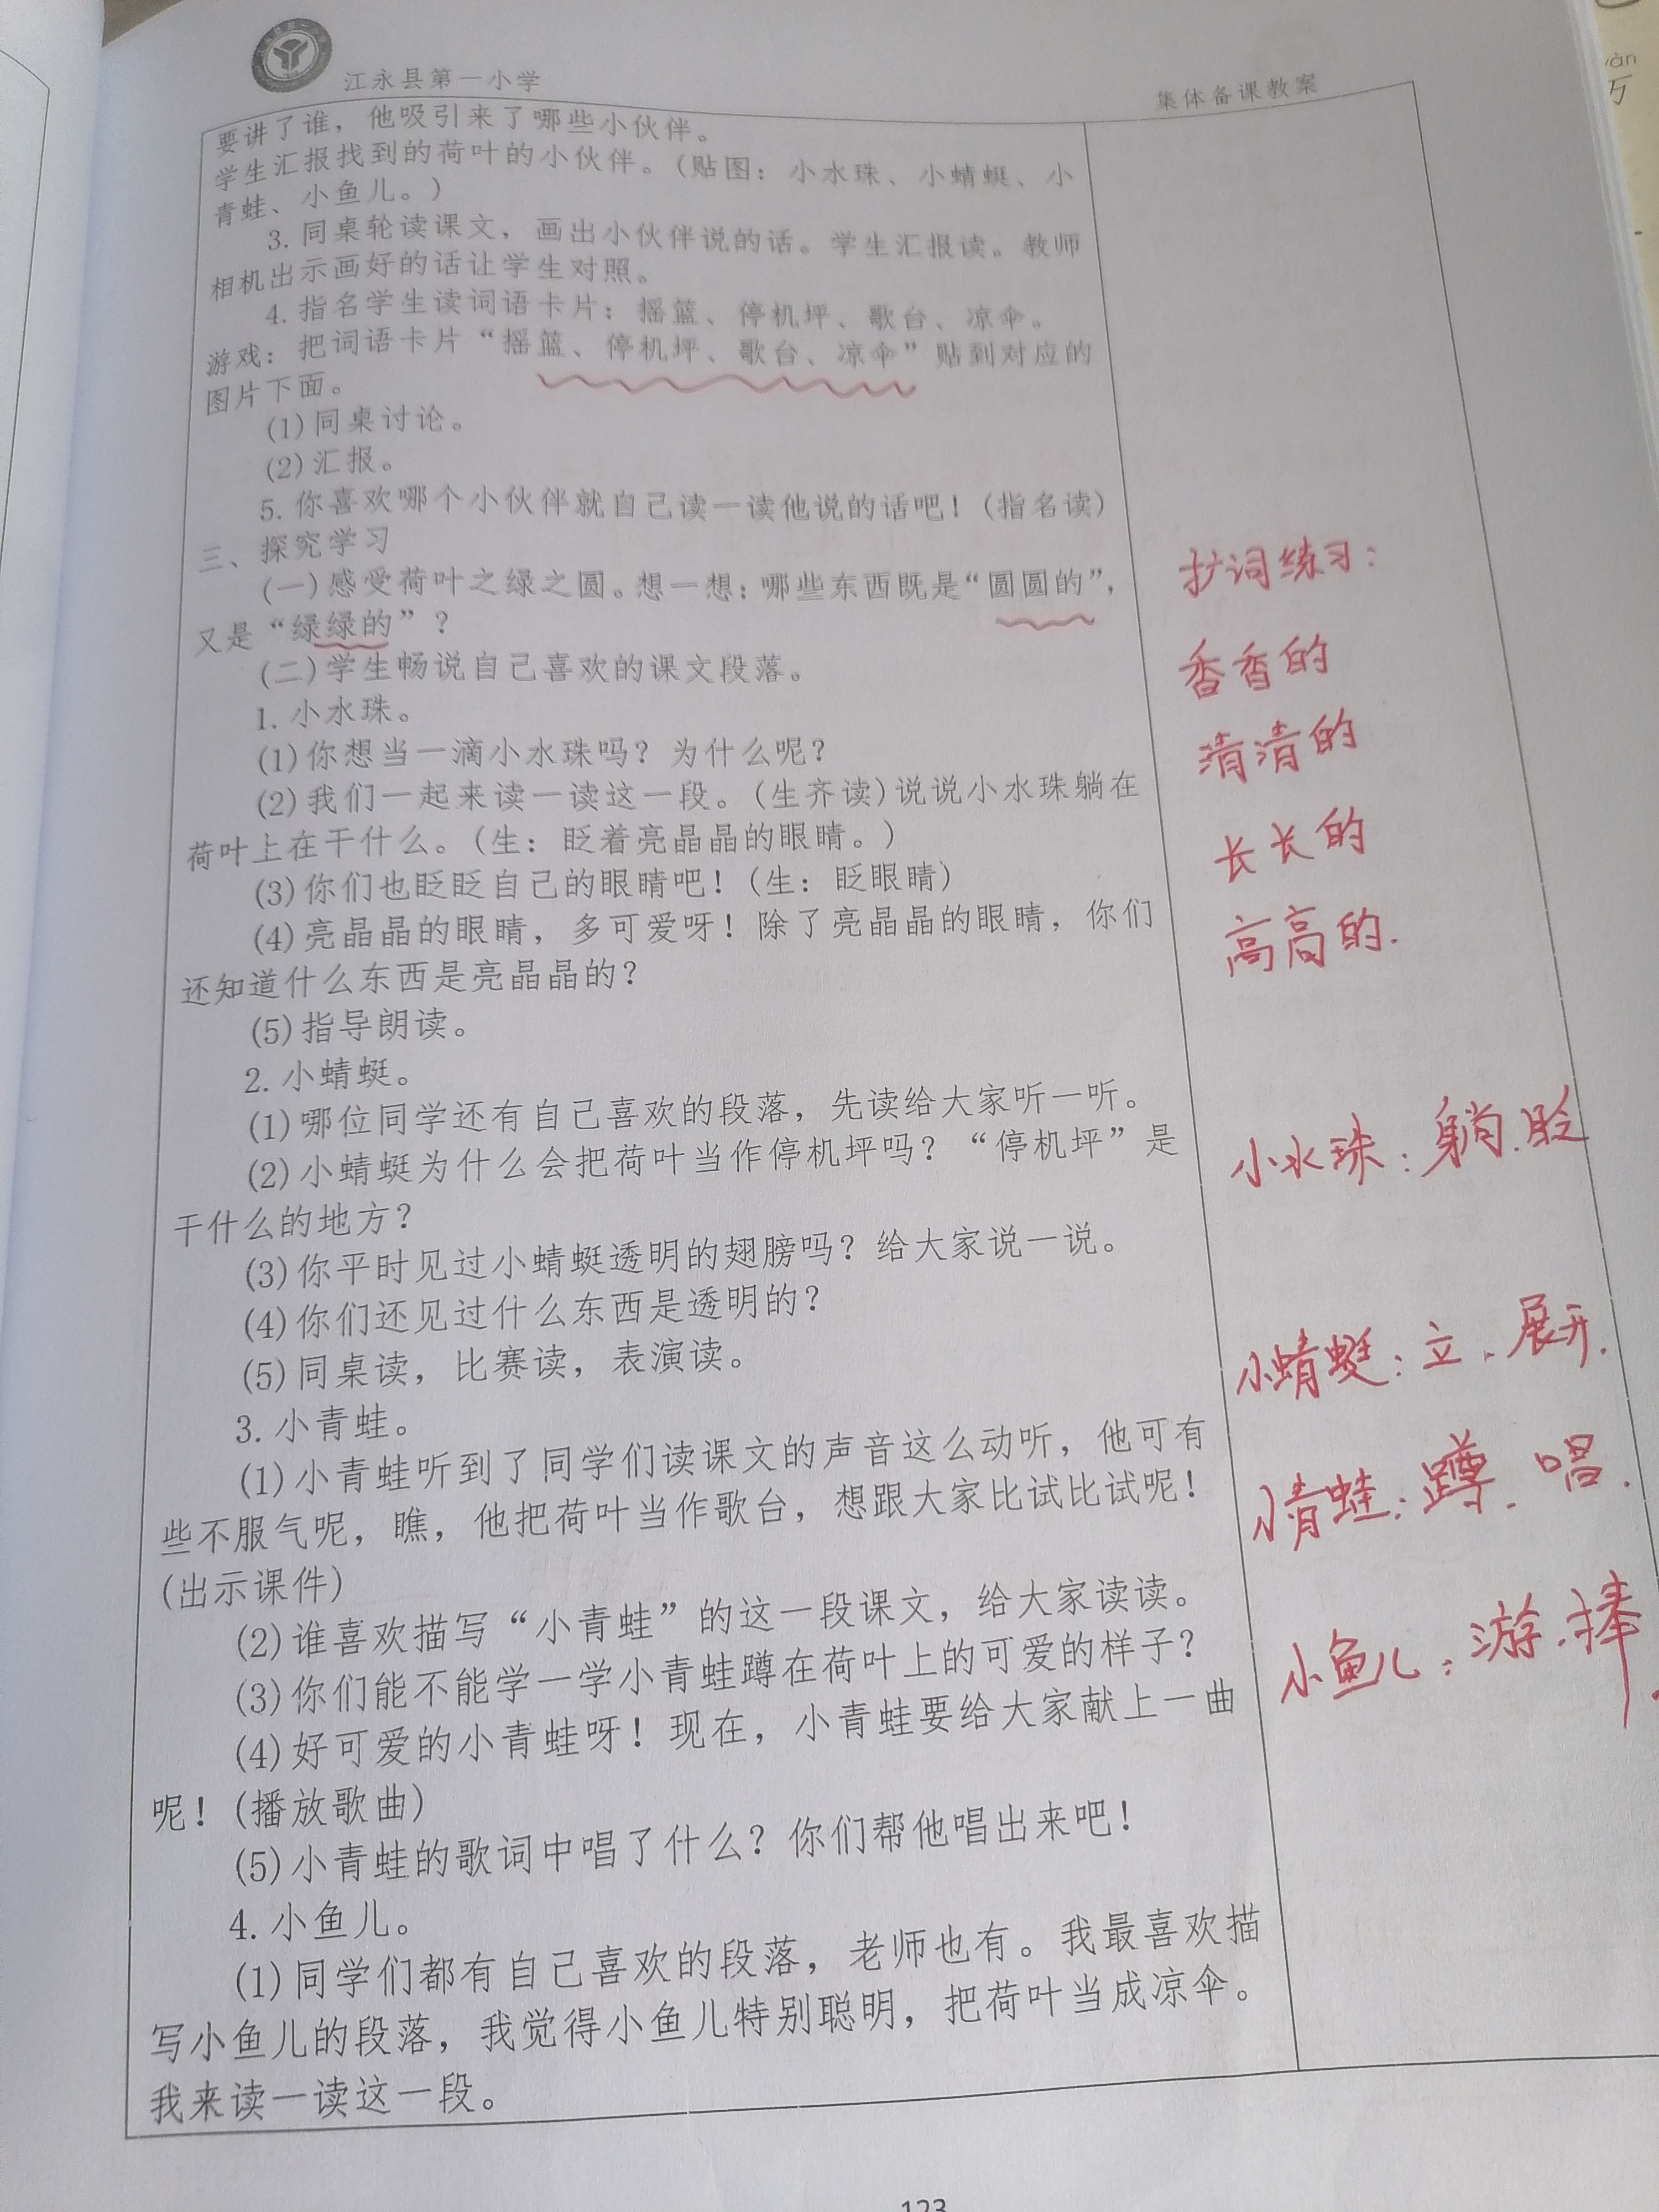 江永县第一小学
集体备课教案
要讲了谁，他吸引来了哪些小伙伴。
学生汇报找到的荷叶的小伙伴。(贴图：小水珠、小蜻蜓、小
青蛙、小鱼儿。)
3.同桌轮读课文，画出小伙伴说的话。学生汇报读。教师
相机出示画好的话让学生对照。
4.指名学生读词语卡片：摇篮、停机坪、歌台、凉伞。
游戏：把词语卡片“摇篮、停机坪、歌台、凉伞”贴到对应的
图片下面。
(1)同桌讨论。
(2)汇报。
5.你喜欢哪个小伙伴就自己读一读他说的话吧！(指名读)
三、探究学习
(一)感受荷叶之绿之圆。想一想：哪些东西既是“圆圆的”，
又是“绿绿的”？
(二)学生畅说自己喜欢的课文段落。
1.小水珠。
(1)你想当一滴小水珠吗？为什么呢？
(2)我们一起来读一读这一段。(生齐读)说说小水珠躺在
荷叶上在干什么。(生：眨着亮晶晶的眼睛。)
(3)你们也眨眨自己的眼睛吧！(生：眨眼睛)
(4)亮晶晶的眼睛，多可爱呀！除了亮晶晶的眼睛，你们
还知道什么东西是亮晶晶的？
(5)指导朗读。
2.小蜻蜓。
(1)哪位同学还有自己喜欢的段落，先读给大家听一听。
(2)小蜻蜓为什么会把荷叶当作停机坪吗？“停机坪”是
干什么的地方？
(3)你平时见过小蜻蜓透明的翅膀吗？给大家说一说。
(4)你们还见过什么东西是透明的？
(5)同桌读，比赛读，表演读。
3.小青蛙。
(1)小青蛙听到了同学们读课文的声音这么动听，他可有
些不服气呢，瞧，他把荷叶当作歌台，想跟大家比试比试呢！
(出示课件)
(2)谁喜欢描写“小青蛙”的这一段课文，给大家读读。
(3)你们能不能学一学小青蛙蹲在荷叶上的可爱的样子？
(4)好可爱的小青蛙呀！现在，小青蛙要给大家献上一曲
呢！(播放歌曲)
(5)小青蛙的歌词中唱了什么？你们帮他唱出来吧！
4.小鱼儿。
(1)同学们都有自己喜欢的段落，老师也有。我最喜欢描
写小鱼儿的段落，我觉得小鱼儿特别聪明，把荷叶当成凉伞。
我来读一读这一段。
扩词练习：
香香的
清清的
长长的
高高的.
小水珠：躺.眨
小蜻蜓：立、展开.
小青蛙：蹲.唱.
小鱼儿：游.捧
123